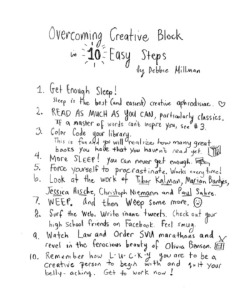 Overcoming Creative Block
in 10 Easy Steps
by Debbie Millman
1. Get Enough Sleep!
Sleep is the best (and easiest) creative aphrodisiac.
2. READ AS MUCH AS YOU CAN, particularly classics.
If a master of words can't inspire you, see #3.
3. Color Code your library.
This is fun and you will realize how many great
books you have that you haven't read yet.
4. More SLEEP! you can never get enough.
5. Force yourself to procrastinate. Works every time!
6. Look at the work of Tibor Kalman, Marian Bantjes,
Jessica Hische, Christoph Niemann and Paul Sahre.
7. WEEP. And then Weep some more.
8. Surf the Web. Write inane tweets. Check out your
high school friends on Facebook. Feel smug.
9. Watch Law and Order SVU marathons and
revel in the ferocious beauty of Olivia Benson.
10. Remember how L-U-C-K-Y you are to be a
creative person to begin with and quit your
belly-aching. Get to work now!